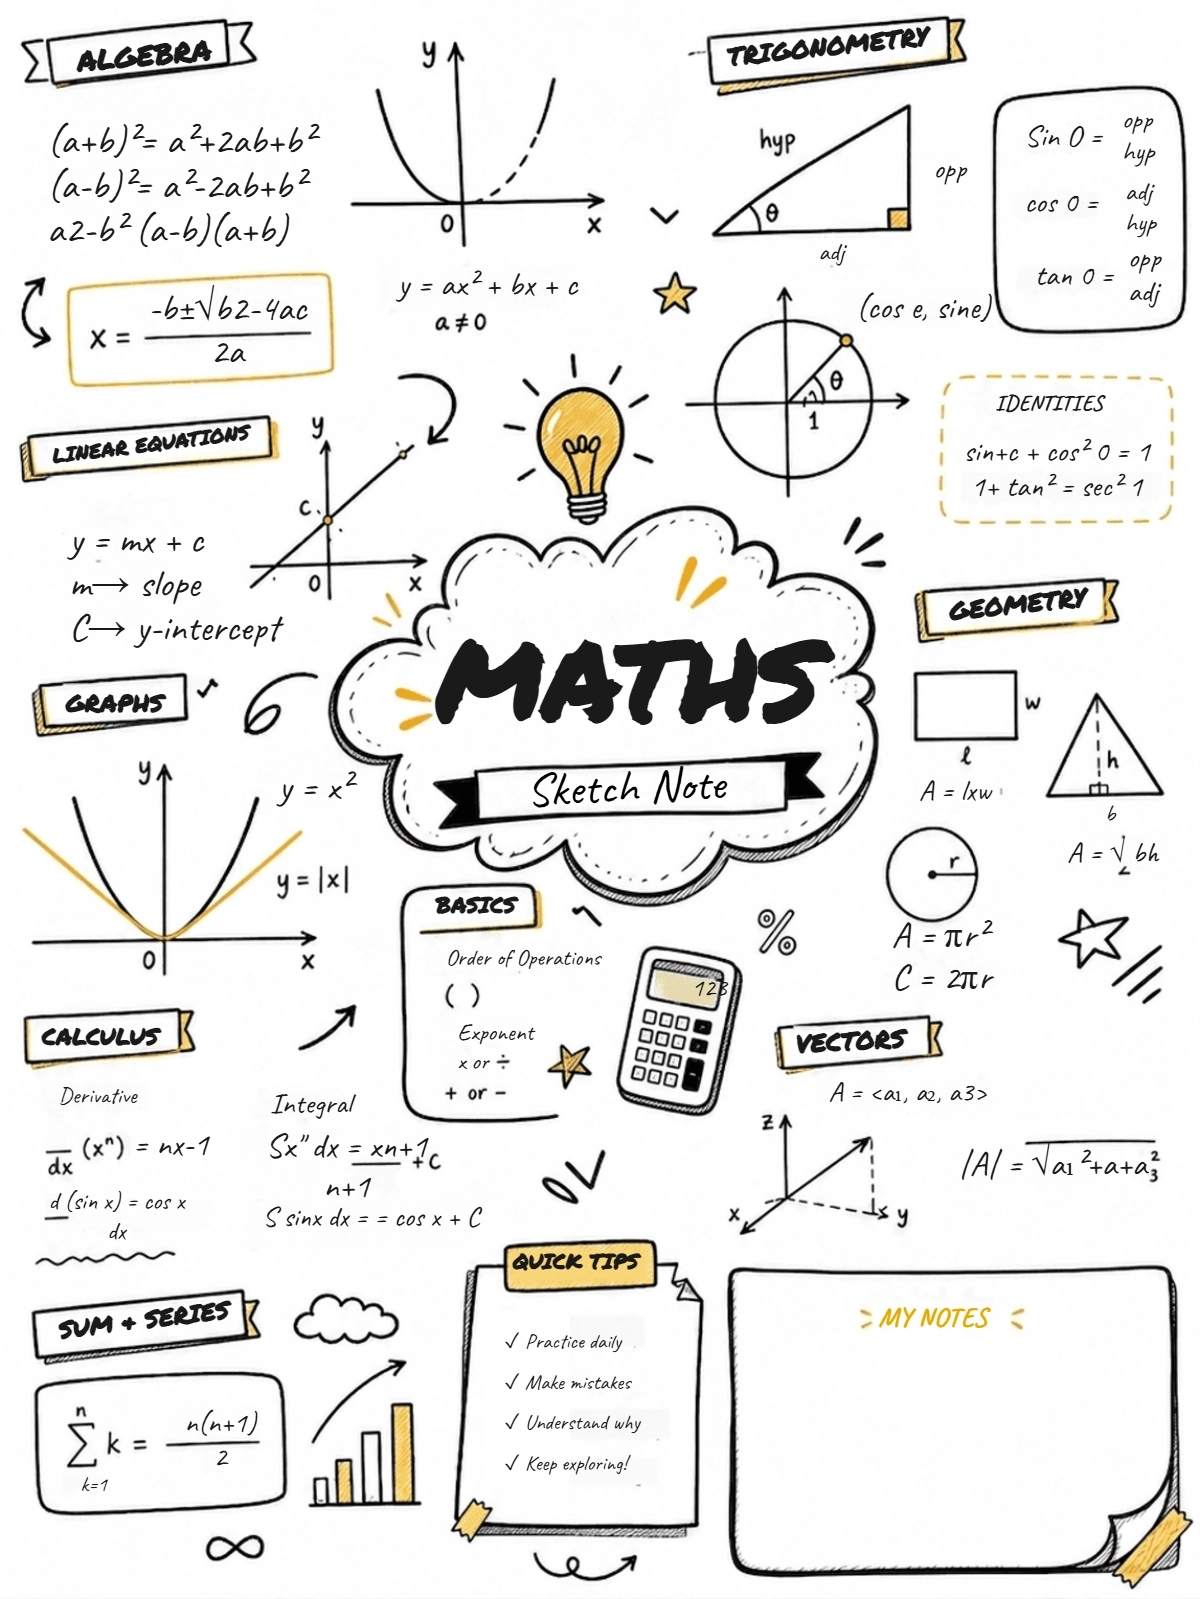 ALGEBRA
(a+b)²= a²+2ab+b²
(a-b)²= a²-2ab+b²
a2-b² (a-b)(a+b)
x = -b±√b2-4ac
2a
y
0
x
y = ax² + bx + c
a ≠ 0
TRIGONOMETRY
hyp
opp
θ
adj
Sin O = opp
hyp
cos O = adj
hyp
tan O = opp
adj
(cos e, sine)
θ
1
IDENTITIES
sin+c + cos² O = 1
1+ tan² = sec² 1
LINEAR EQUATIONS
y
C
0
x
y = mx + c
m→ slope
C→ y-intercept
MATHS
Sketch Note
GEOMETRY
w
l
A = lxw
h
b
A = √ bh
r
A = πr²
C = 2πr
GRAPHS
y
y = x²
y = |x|
0
x
BASICS
Order of Operations
( )
Exponent
x or ÷
+ or -
123
%
CALCULUS
Derivative
dx (xⁿ) = nx-1
d (sin x) = cos x
dx
Integral
Sx" dx = xn+1 +C
n+1
S sinx dx = = cos x + C
VECTORS
A = <a₁, a₂, a3>
z
x
y
/A/ = √a₁ ²+a+a₃²
SUM + SERIES
n
∑ k = n(n+1)
2
k=1
∞
QUICK TIPS
✓ Practice daily
✓ Make mistakes
✓ Understand why
✓ Keep exploring!
MY NOTES